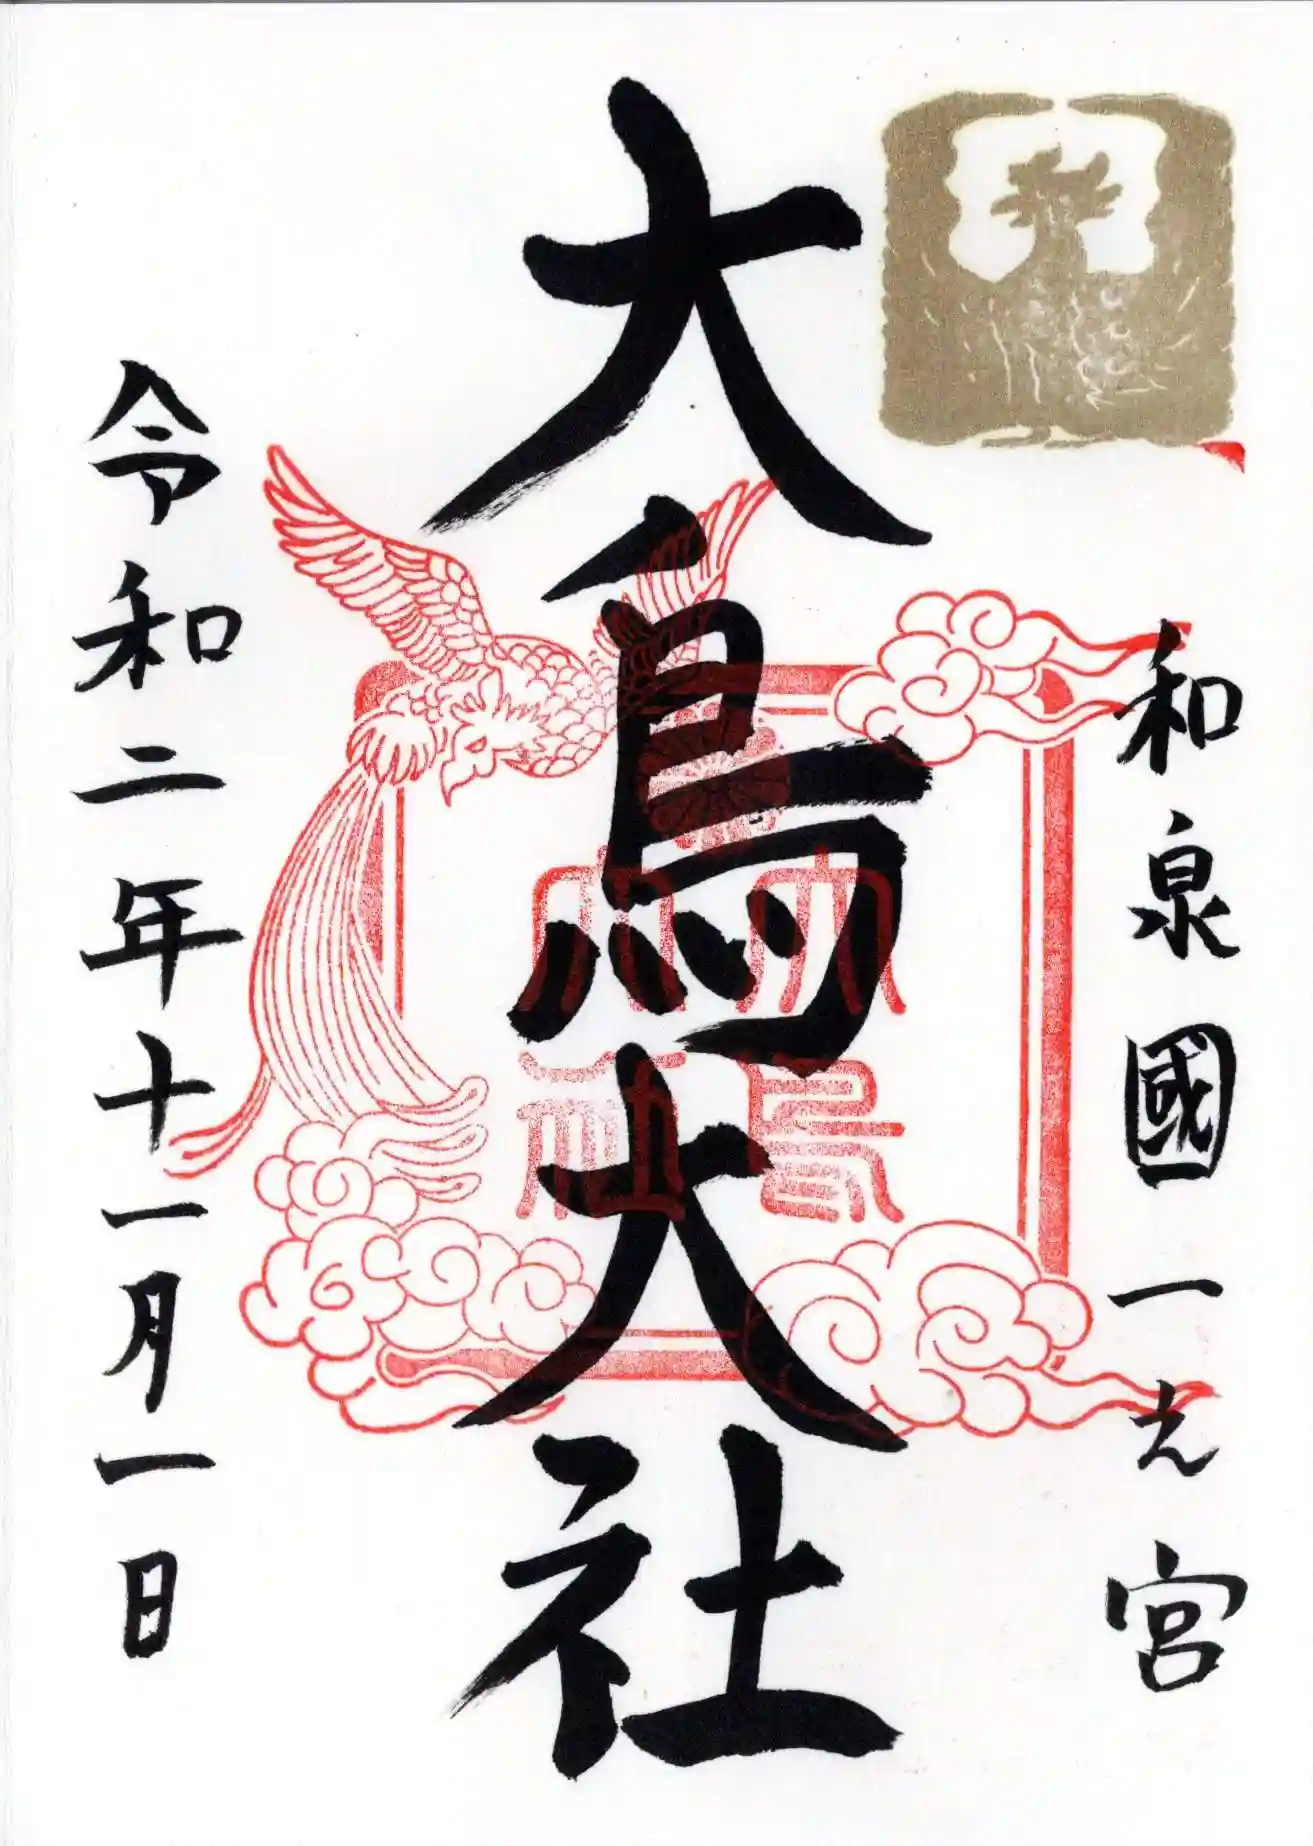 和泉國一之宮
大鳥大社
大鳥大社
令和二年十一月一日